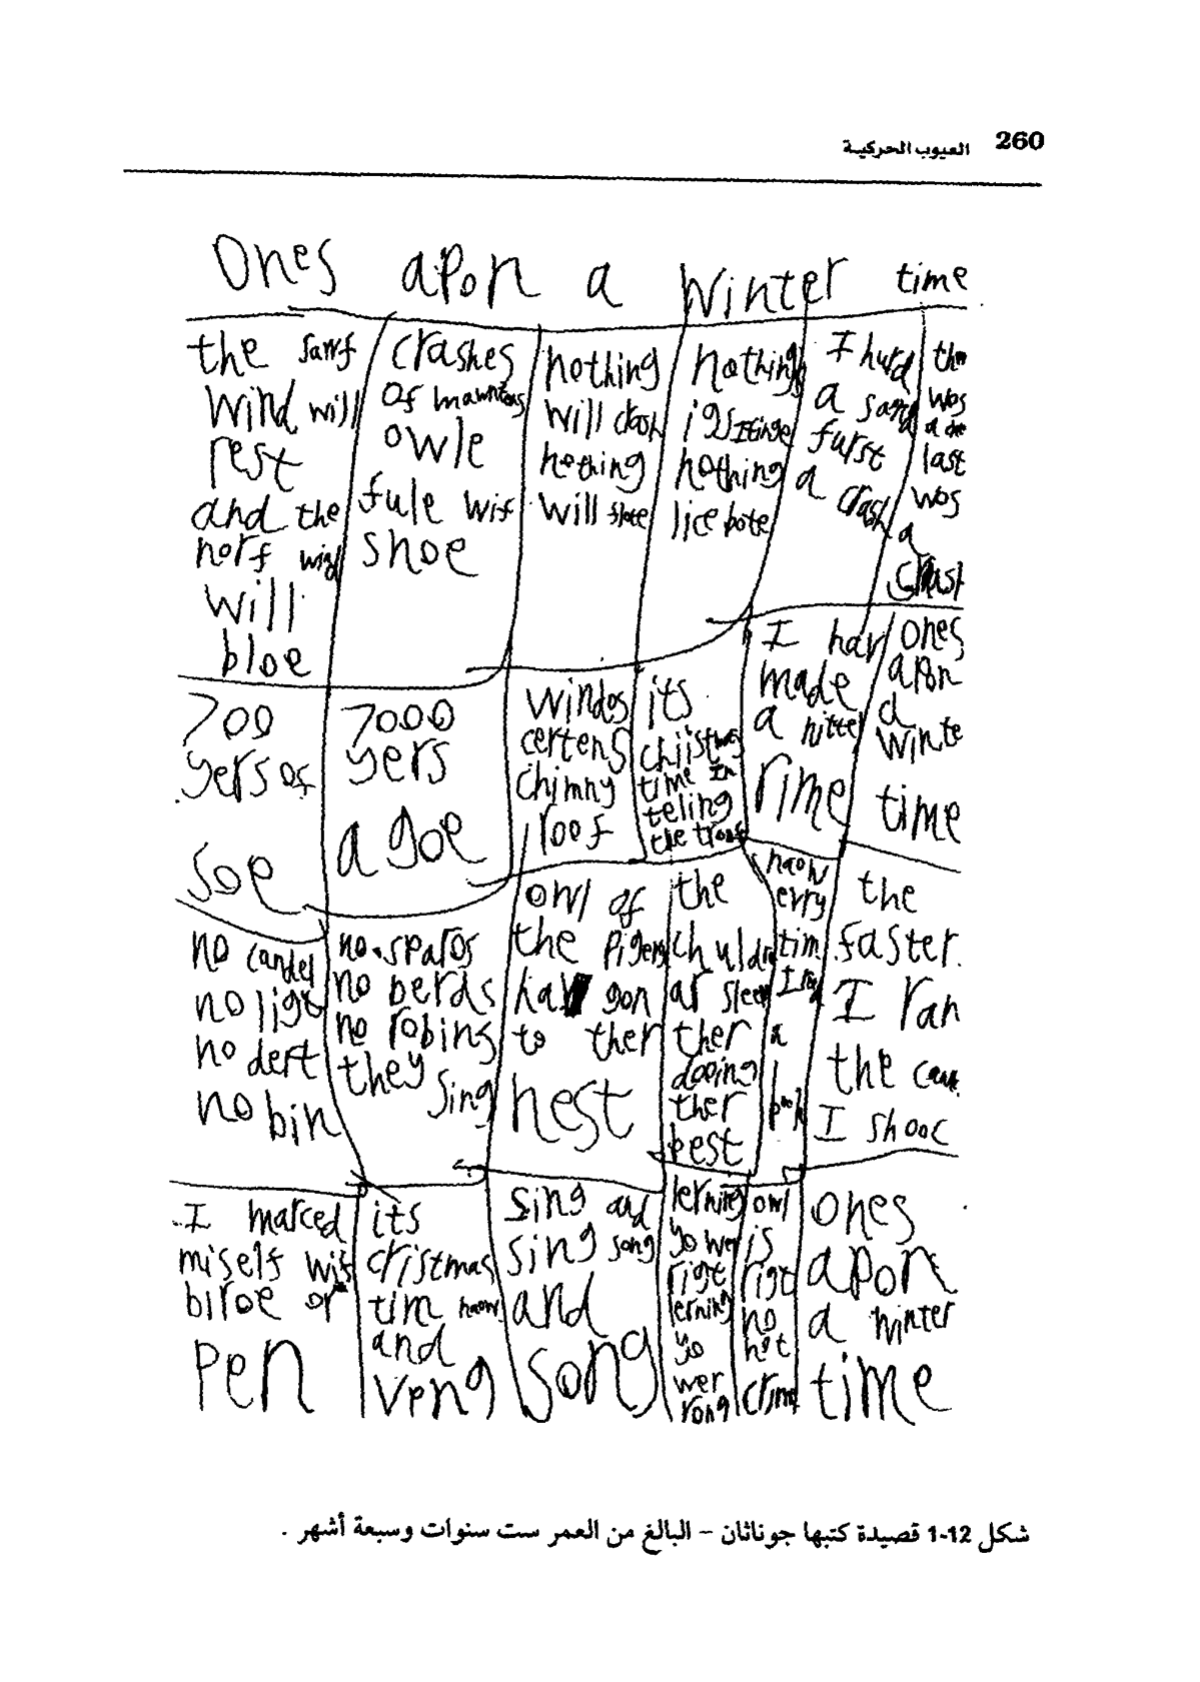 260 العيوب الحركية
Ones apon a winter time
the sawf
wind will
rest
and the
norf wind
will
bloe
crashes
of mawntens
owle
fule wif
shoe
nothing
will crash
nothing
will
nothing
nothing
lice bote
I hurd
a sand
furst
a crash
was
last
was
a
700
yers of
soe
7000
yers
a goe
windos
certens
chimny
roof
its
chiistmas
time
teling
the
I hav
made
a
rime
ones
apon
a
winte
time
no candel
no ligt
no dert
no bin
no sparos
no berds
no robins
they sing
owl of
the pigens
hav gon
to ther
nest
the
chuldren
ar sleep
ther
dooing
ther
best
naow
evry
tim
I
a
book
the
faster
I ran
the
I shooc
I marced
miself wif
biroe or
pen
its
cristmas
tim naow
and
veng
sing and
sing song
and
song
lerning
yo wer
rigt
lerning
yo
wer
rong
owl
is
rigt
no
not
crime
ones
apon
a winter
time
شكل 12-1 قصيدة كتبها جوناثان – البالغ من العمر ست سنوات وسبعة أشهر .